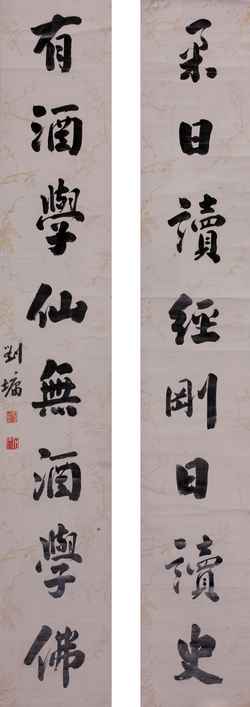 柔日讀經剛日讀史
有酒學仙無酒學佛
劉墉